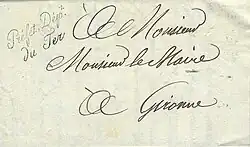 Préfet. Dép.t
du Ter
A Monsieur
Monsieur le Maire
A Gironne